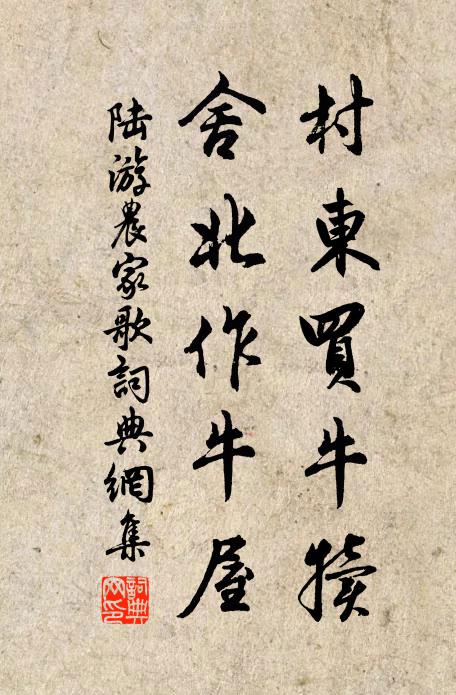 村東買牛犢
舍北作牛屋
陆游農家歌詞典網集
詞典
网印